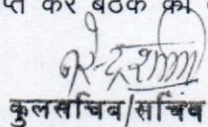 प्त कर बैठक की
कुलसचिव/सचिव